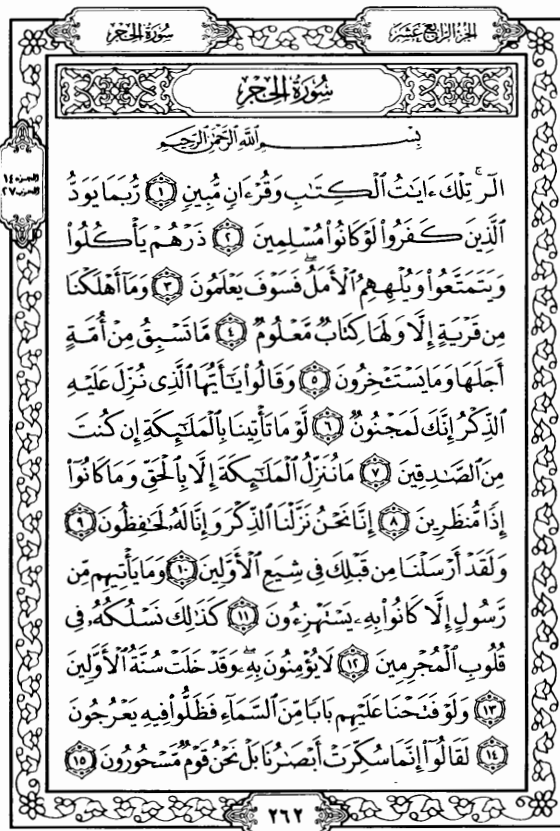 سُورَةُ الحِجْر
الجُزءُ الرَّابِعَ عَشَرَ
سُورَةُ الحِجْر
الجزء ١٤
الحزب ٢٧
بِسْمِ اللَّهِ الرَّحْمَٰنِ الرَّحِيمِ
الٓر ۚ تِلْكَ ءَايَٰتُ ٱلْكِتَٰبِ وَقُرْءَانٍ مُّبِينٍ ١ رُّبَمَا يَوَدُّ
ٱلَّذِينَ كَفَرُوا۟ لَوْ كَانُوا۟ مُسْلِمِينَ ٢ ذَرْهُمْ يَأْكُلُوا۟
وَيَتَمَتَّعُوا۟ وَيُلْهِهِمُ ٱلْأَمَلُ ۖ فَسَوْفَ يَعْلَمُونَ ٣ وَمَآ أَهْلَكْنَا
مِن قَرْيَةٍ إِلَّا وَلَهَا كِتَابٌ مَّعْلُومٌ ٤ مَّا تَسْبِقُ مِنْ أُمَّةٍ
أَجَلَهَا وَمَا يَسْتَـْٔخِرُونَ ٥ وَقَالُوا۟ يَٰٓأَيُّهَا ٱلَّذِى نُزِّلَ عَلَيْهِ
ٱلذِّكْرُ إِنَّكَ لَمَجْنُونٌ ٦ لَّوْ مَا تَأْتِينَا بِٱلْمَلَٰٓئِكَةِ إِن كُنتَ
مِنَ ٱلصَّٰدِقِينَ ٧ مَا نُنَزِّلُ ٱلْمَلَٰٓئِكَةَ إِلَّا بِٱلْحَقِّ وَمَا كَانُوٓا۟
إِذًا مُّنظَرِينَ ٨ إِنَّا نَحْنُ نَزَّلْنَا ٱلذِّكْرَ وَإِنَّا لَهُۥ لَحَٰفِظُونَ ٩
وَلَقَدْ أَرْسَلْنَا مِن قَبْلِكَ فِى شِيَعِ ٱلْأَوَّلِينَ ١٠ وَمَا يَأْتِيهِم مِّن
رَّسُولٍ إِلَّا كَانُوا۟ بِهِۦ يَسْتَهْزِءُونَ ١١ كَذَٰلِكَ نَسْلُكُهُۥ فِى
قُلُوبِ ٱلْمُجْرِمِينَ ١٢ لَا يُؤْمِنُونَ بِهِۦ ۖ وَقَدْ خَلَتْ سُنَّةُ ٱلْأَوَّلِينَ
١٣ وَلَوْ فَتَحْنَا عَلَيْهِم بَابًا مِّنَ ٱلسَّمَآءِ فَظَلُّوا۟ فِيهِ يَعْرُجُونَ
١٤ لَقَالُوٓا۟ إِنَّمَا سُكِّرَتْ أَبْصَٰرُنَا بَلْ نَحْنُ قَوْمٌ مَّسْحُورُونَ ١٥
٢٦٢